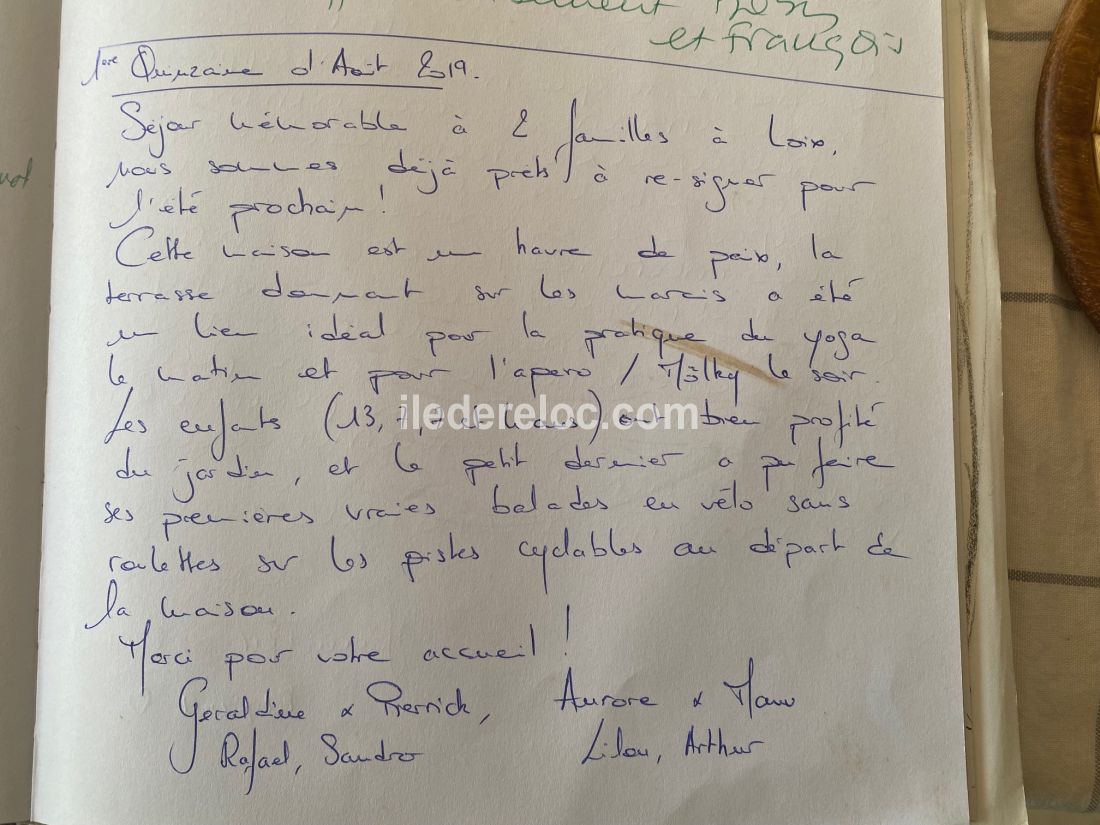 et François
1ère Quinzaine d'Août 2019.
Séjour mémorable à 2 familles à Loix,
nous sommes déjà prêts à re-signer pour
l'été prochain !
Cette maison est un havre de paix, la
terrasse donnant sur les marais a été
un lieu idéal pour la pratique du yoga
le matin et pour l'apero / Mölky le soir.
Les enfants (13, 7, 7 et 4 ans) ont bien profité
iledereloc.com
du jardin, et le petit dernier a pu faire
ses premières vraies balades en vélo sans
roulettes sur les pistes cyclables au départ de
la maison.
Merci pour votre accueil !
Geraldine & Pierrick, Aurore & Manu
Rafael, Sandro Lilou, Arthur